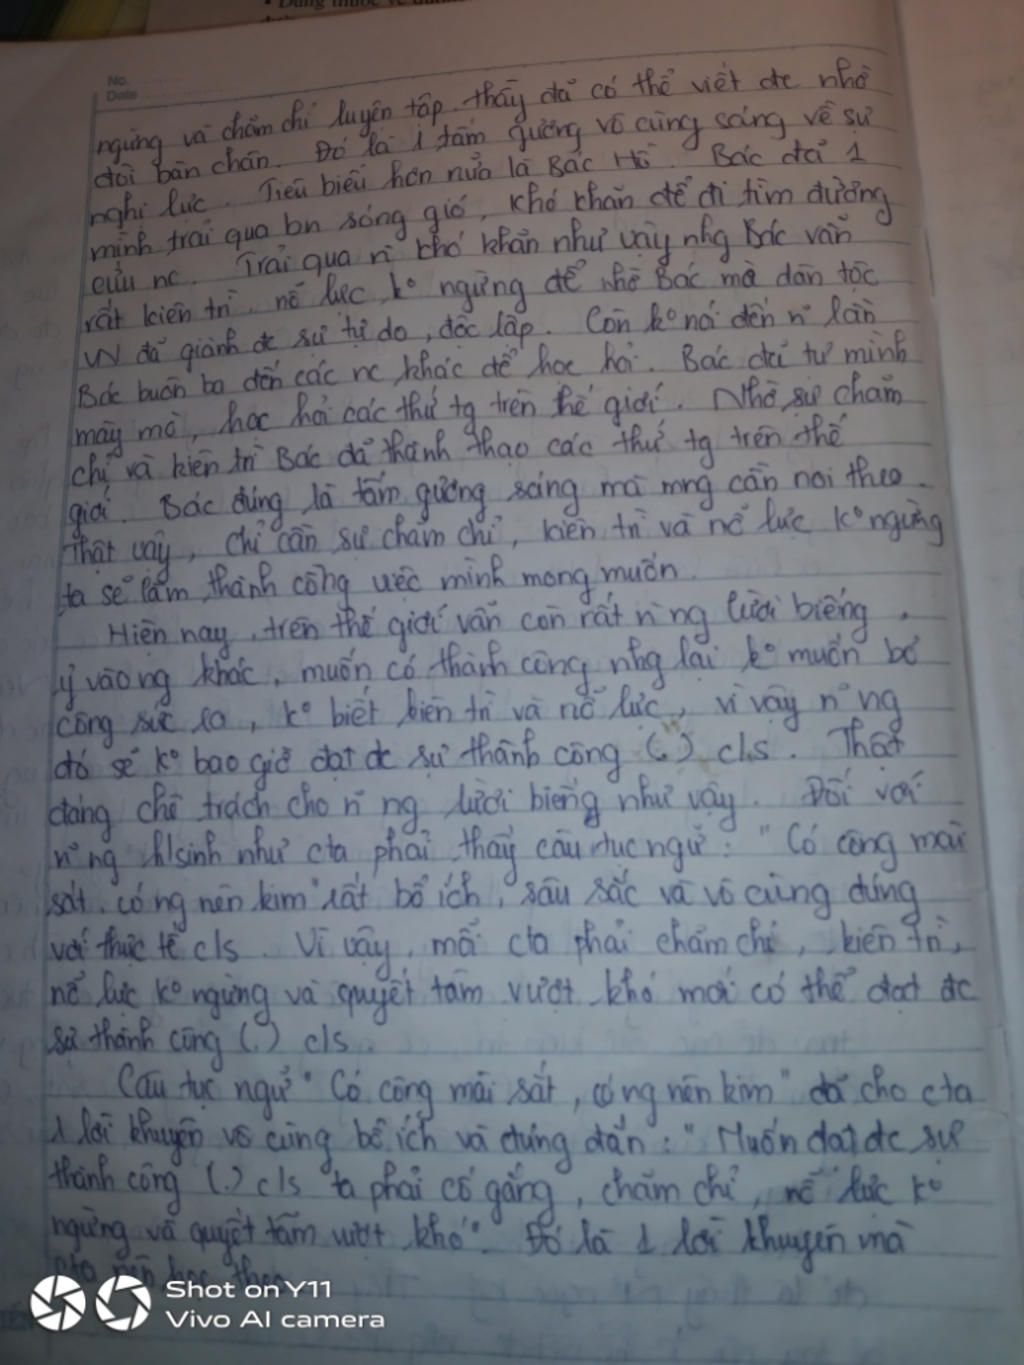 • Dùng thuốc về đường
No.
Date
ngừng và chăm chỉ luyện tập. thầy đã có thể viết đc nhờ
đôi bàn chân. Đó là 1 tấm gương vô cùng sáng về sự
nghị lực. Tiêu biểu hơn nữa là Bác Hồ Bác đã 1
mình trải qua bn sóng gió, khó khăn để đi tìm đường
cứu nc. Trải qua n~ khó khăn như vậy nhg Bác vẫn
rất kiên trì, nổ lực k° ngừng để nhờ Bác mà dân tộc
VN đã giành đc sự tự do, độc lập. Còn k° nói đến n~ lần
Bác buôn ba đến các nc khác để học hỏi. Bác đã tự mình
mày mò, học hỏi các thứ tg trên thế giới. Nhờ sự chăm
chỉ và kiên trì Bác đã thành thạo các thứ tg trên thế
giới. Bác đúng là tấm gương sáng mà mng cần noi theo.
Thật vậy, chỉ cần sự chăm chỉ, kiên trì và nổ lực k° ngừng
ta sẽ làm thành công việc mình mong muốn.
Hiện nay, trên thế giới vẫn còn rất n~ ng lười biếng,
ỷ vào ng khác, muốn có thành công nhg lại k° muốn bỏ
công sức ra, k° biết kiên trì và nổ lực, vì vậy n~ ng
đó sẽ k° bao giờ đạt đc sự thành công (.) c/s. Thật
đáng chê trách cho n~ ng lười biếng như vậy. Đối với
n~ ng h/sinh như cta phải thấy câu tục ngữ: "Có công mài
sắt, có ng nên kim" rất bổ ích, sâu sắc và vô cùng đúng
với thực tế c/s. Vì vậy, mỗi cta phải chăm chỉ, kiên trì,
nổ lực k° ngừng và quyết tâm vượt khó mới có thể đạt đc
sự thành công (.) c/s.
Câu tục ngữ "Có công mài sắt, có ng nên kim" đã cho cta
1 lời khuyên vô cùng bổ ích và đúng đắn: "Muốn đạt đc sự
thành công (.) c/s ta phải cố gắng, chăm chỉ, nổ lực k°
ngừng và quyết tâm vượt khó". Đó là 1 lời khuyên mà
cta nên học theo
Shot on Y11
Vivo AI camera